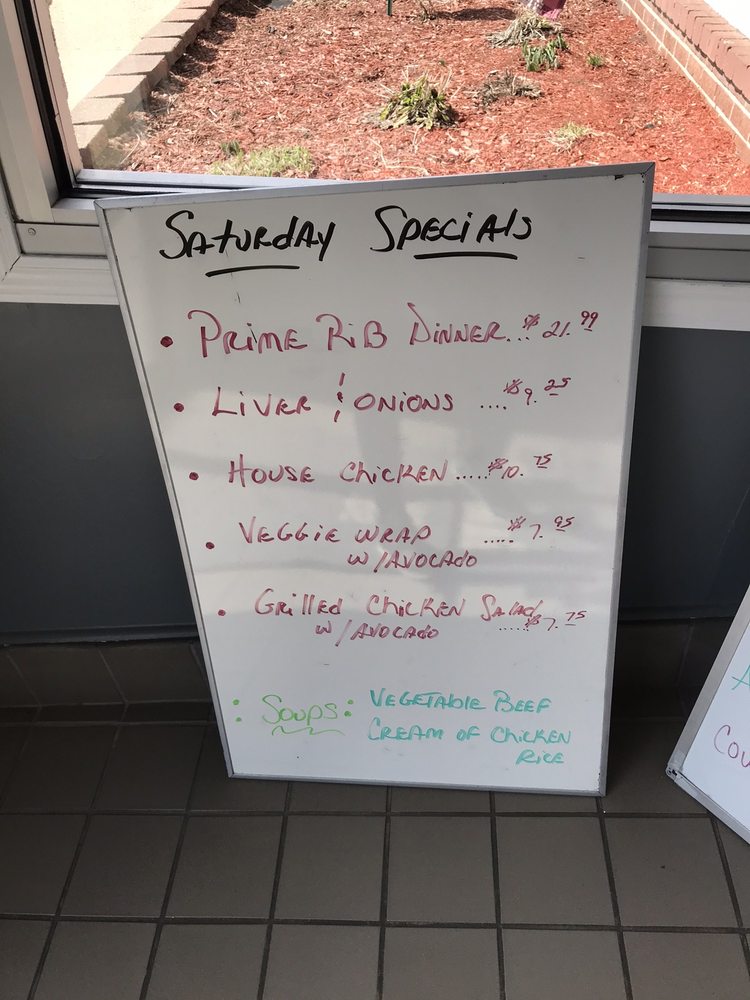 Saturday Specials
• Prime Rib Dinner... $21.99
• Liver & Onions .... $9.25
• House Chicken ..... $10.75
• Veggie Wrap ..... $7.95
w/Avocado
• Grilled Chicken Salad
w/Avocado ...... $7.75
: Soups: Vegetable Beef
Cream of Chicken
Rice